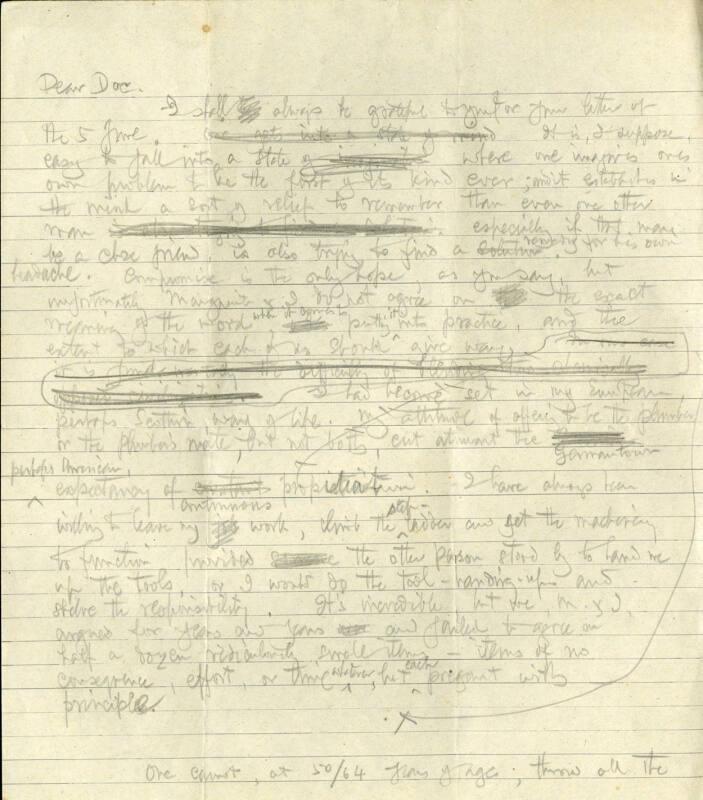 Dear Doc.
I shall always be grateful to you for your letter of
the 5 June. It is, I suppose,
easy to fall into a state of where one imagines ones
own problem to be the first of its kind ever; and it establishes in
the mind a sort of relief to remember than even one other
man especially if that man
be a close friend, is also trying to find a remedy for his own
headache. Compromise is the only hope, as you say, but
unfortunately Margaret & I do not agree on the exact
meaning of the word when it comes to putting it into practice, and the
extent to which each of us should give way.
it is the difficulty of
I had become set in my European
perhaps Scottish way of life. My attitude of offer to be the plumber
or the plumber's mate, but not both, cut athwart the
Germantown
perhaps American,
expectancy of continuous propitiation. I have always been
willing to leave my work, climb the step-ladder and get the machinery
to function provided the other person stood by to hand me
up the tools, or I would do the tool-handing-up and
share the responsibility. It's incredible but we, M. & I,
argued for years and years and failed to agree on
half a dozen ridiculously simple items – items of no
consequence, effort, or time whatever, but each pregnant with
principle.
x
One cannot, at 50/64 years of age, throw all the